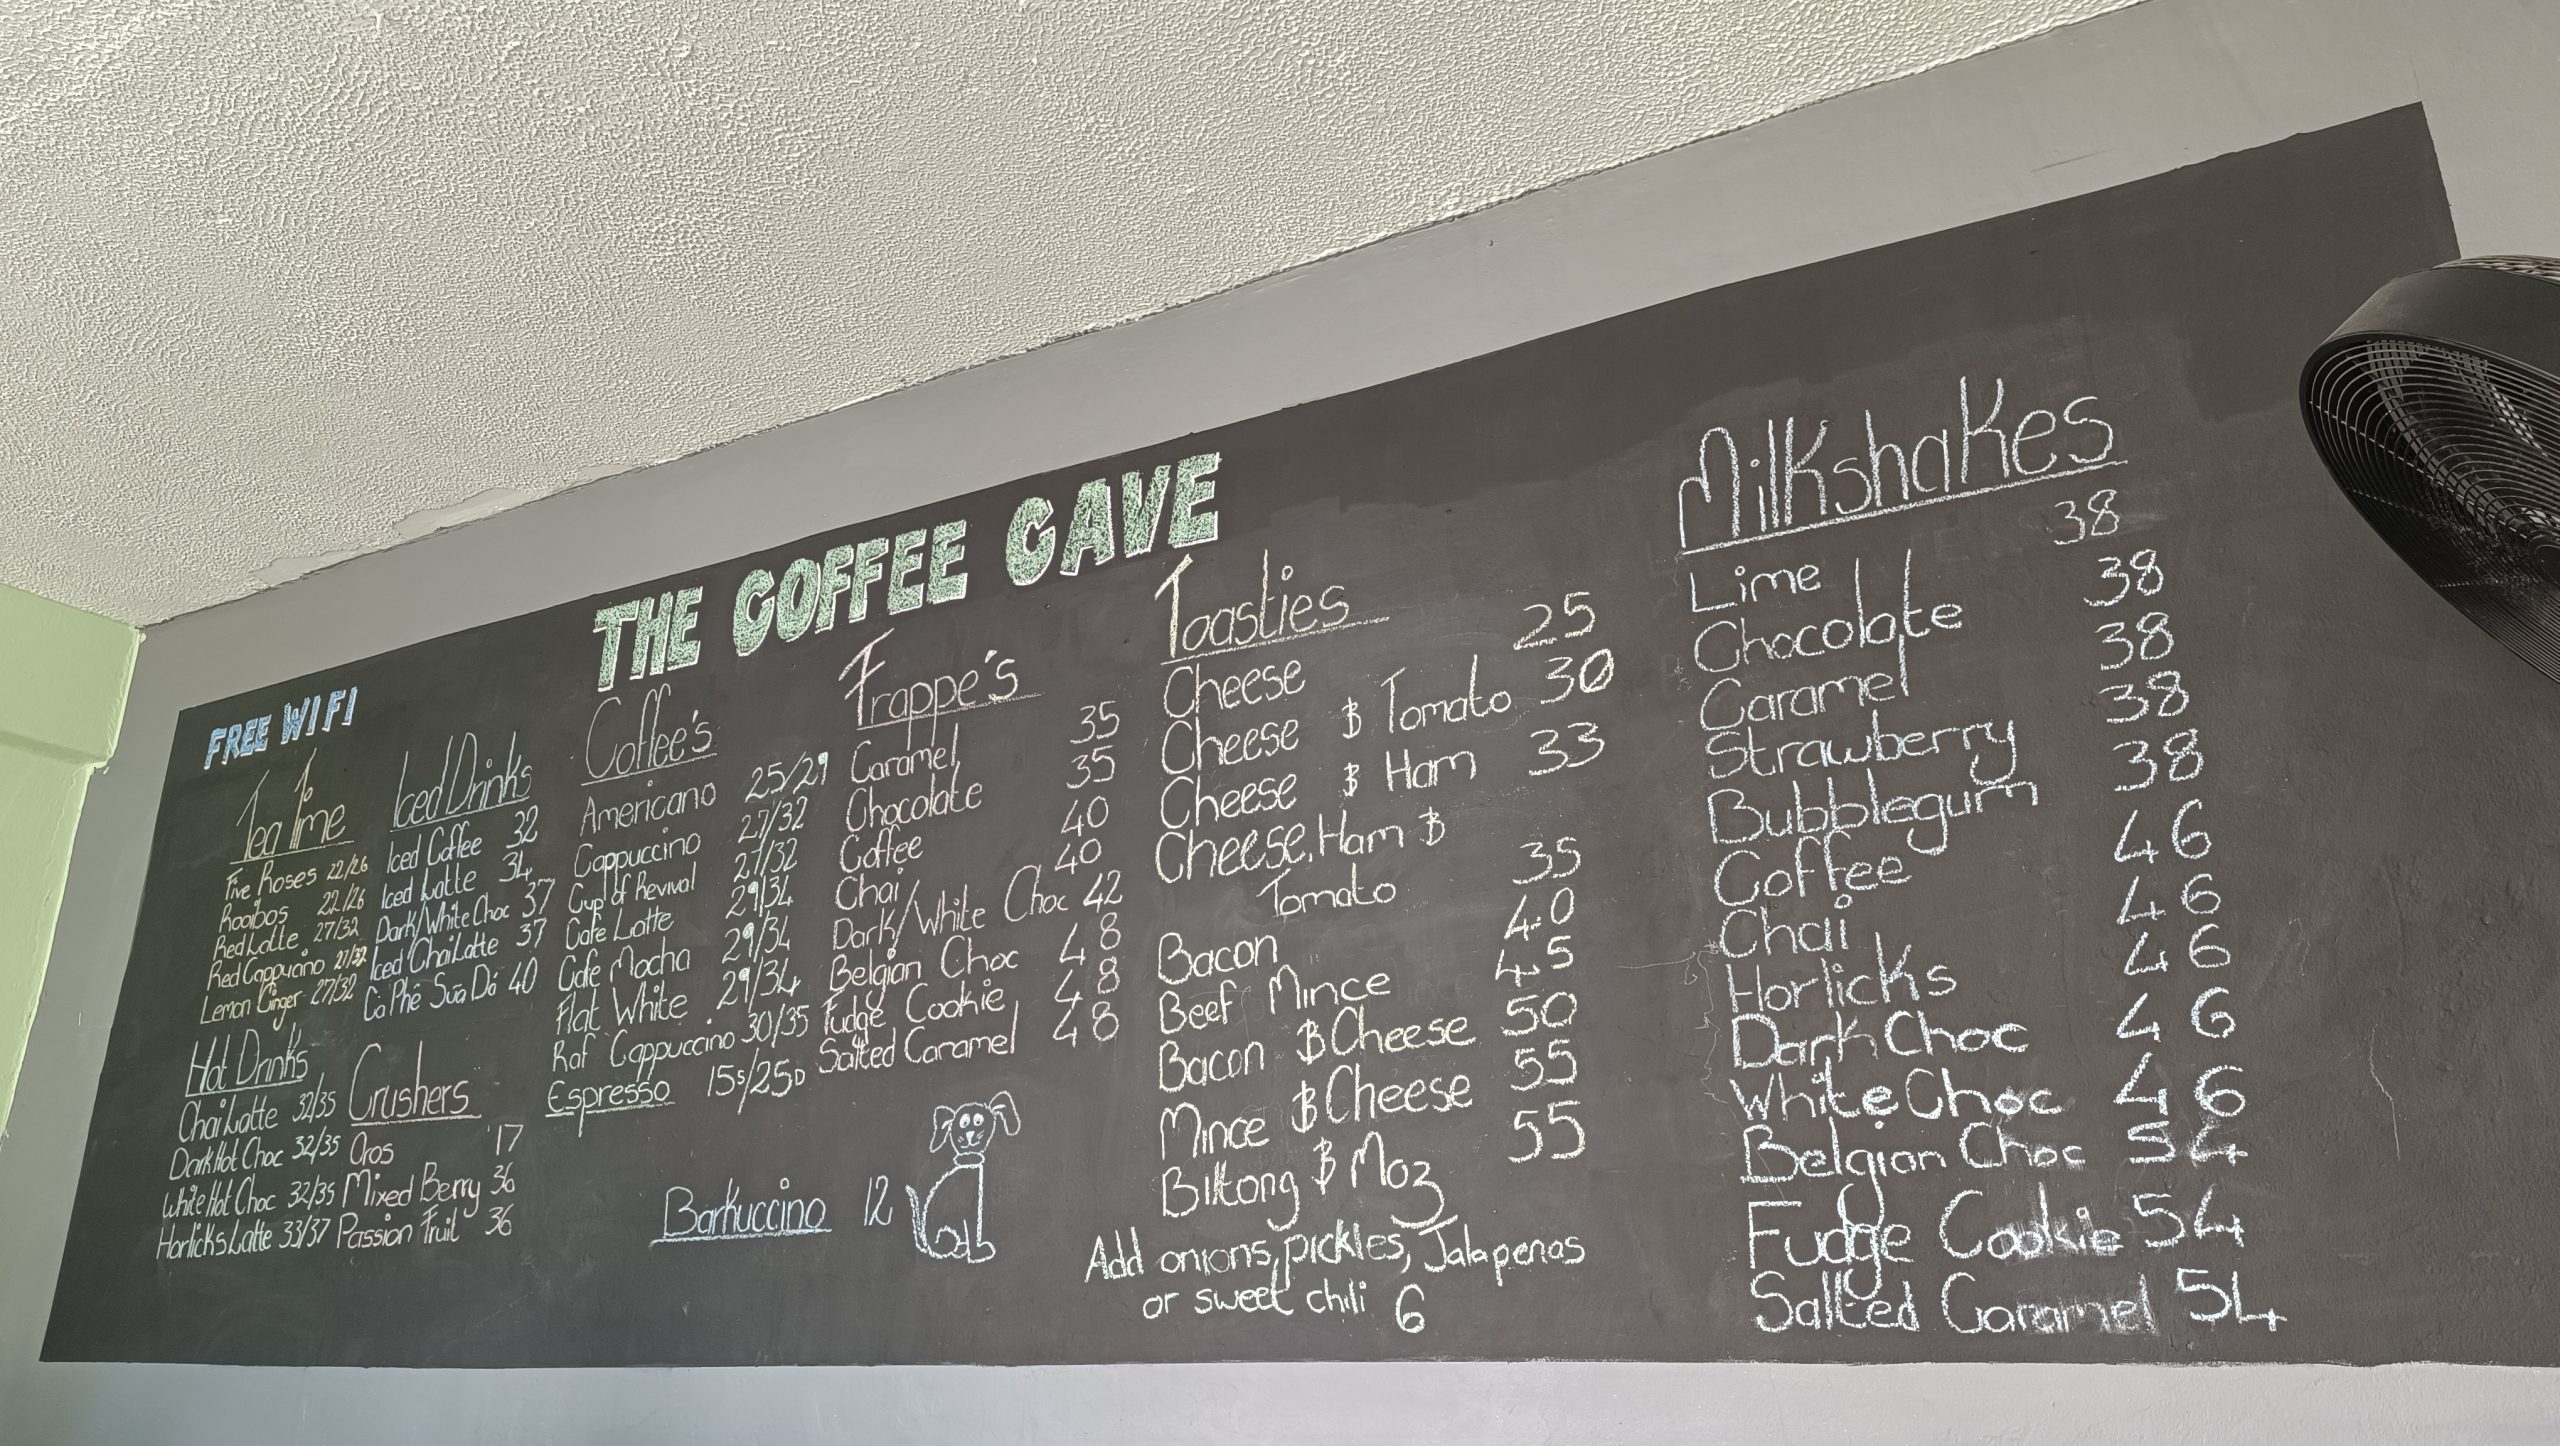 THE COFFEE CAVE
FREE WIFI
Tea Time
Five Roses 22/26
Rooibos 22/26
Red Latte 27/32
Red Cappucino 27/32
Lemon Ginger 27/32
Hot Drinks
Chai Latte 32/35
Dark Hot Choc 32/35
White Hot Choc 32/35
Horlicks Latte 33/37
Iced Drinks
Iced Coffee 32
Iced Latte 34
Dark/White Choc 37
Iced Chai Latte 37
Cà Phê Sūa Dá 40
Crushers
Oros 17
Mixed Berry 36
Passion Fruit 36
Coffee's
Americano 25/29
Cappuccino 27/32
Cup of Revival 27/32
Cafe Latte 29/34
Cafe Mocha 29/34
Flat White 29/34
Raf Cappuccino 30/35
Espresso 15s/25D
Barkuccino 12
Frappe's
Caramel 35
Chocolate 35
Coffee 40
Chai 40
Dark/White Choc 42
Belgian Choc 48
Fudge Cookie 48
Salted Caramel 48
Toasties
Cheese 25
Cheese & Tomato 30
Cheese & Ham 33
Cheese, Ham &
Tomato 35
Bacon 40
Beef Mince 45
Bacon & Cheese 50
Mince & Cheese 55
Biltong & Moz 55
Add onions, pickles, Jalapenas
or sweet chili 6
Milkshakes
Lime 38
Chocolate 38
Caramel 38
Strawberry 38
Bubblegum 38
Coffee 46
Chai 46
Horlicks 46
Dark Choc 46
White Choc 46
Belgian Choc 54
Fudge Cookie 54
Salted Caramel 54